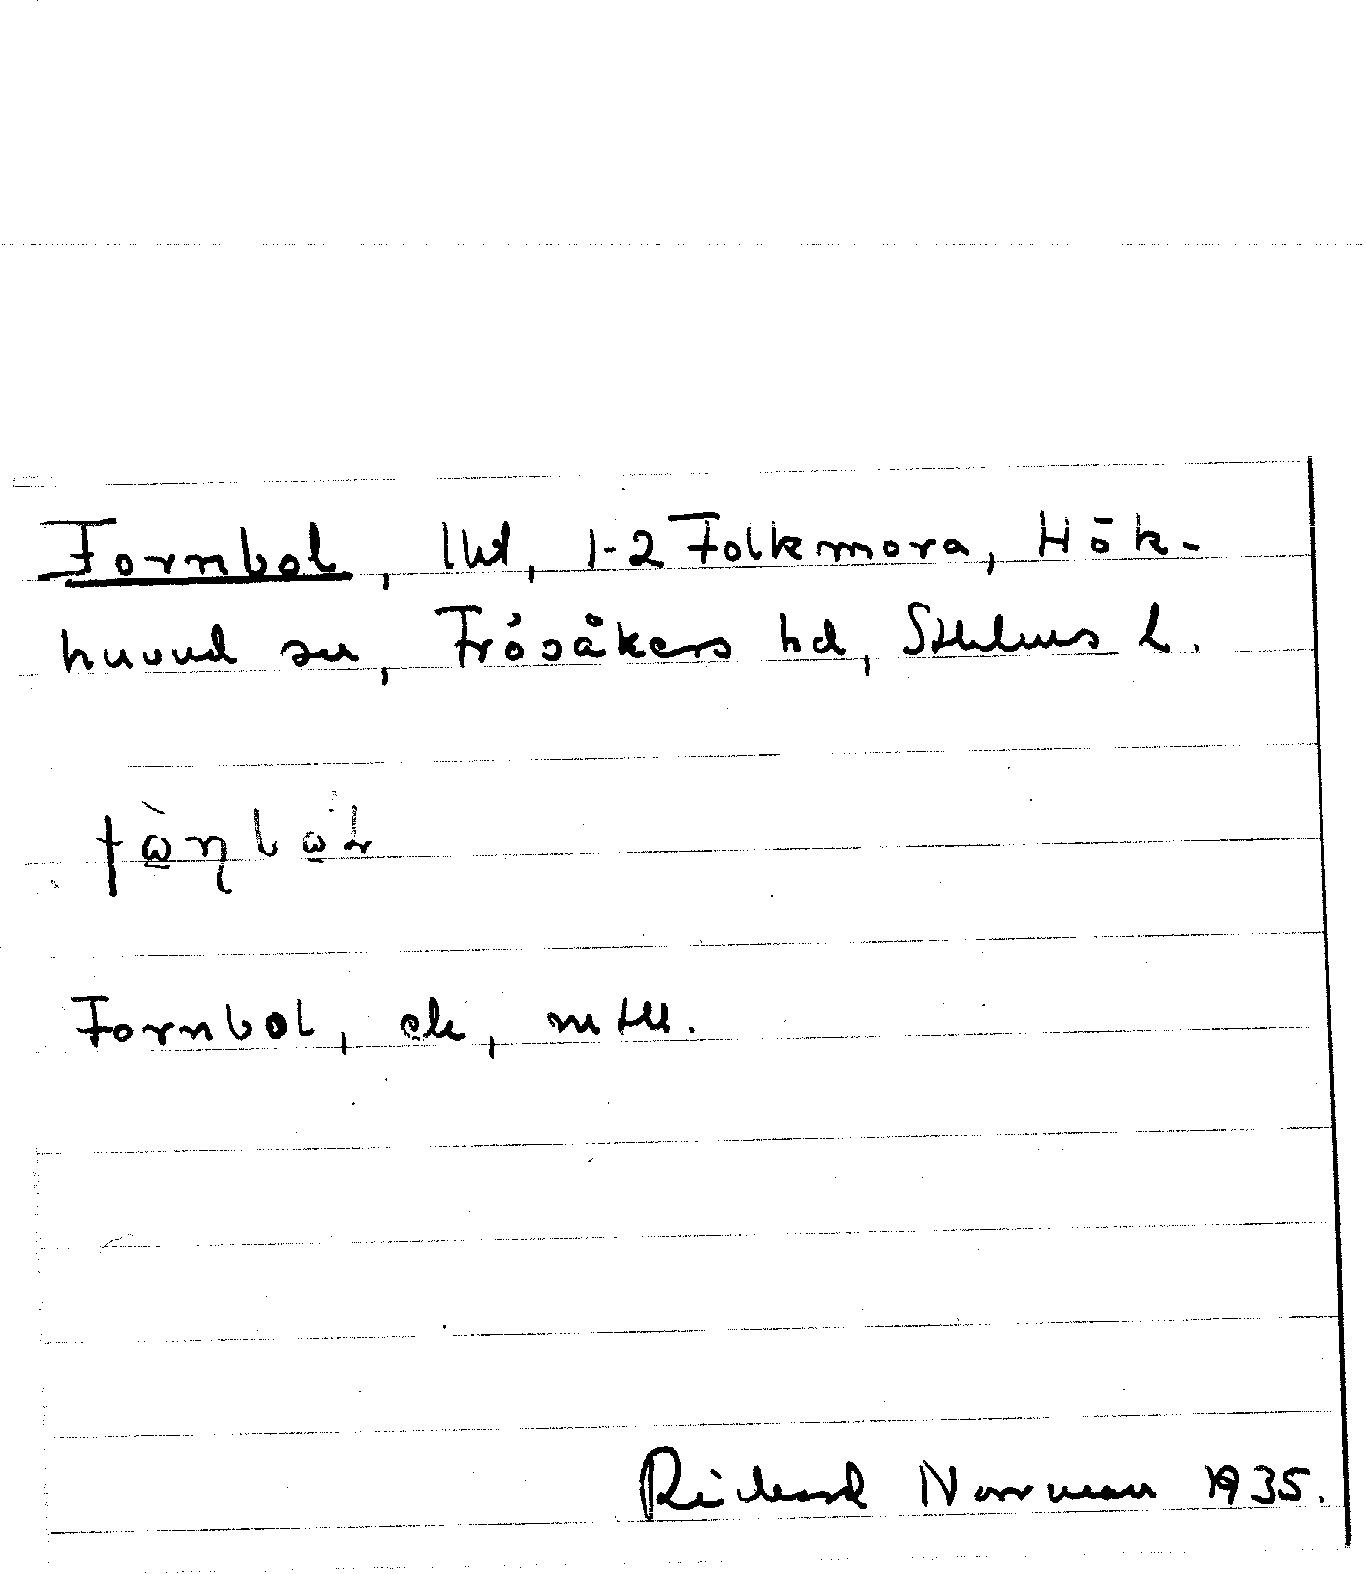 Fornbol, lht, 1-2 Folkmora, Hök-
huvud sn, Frösåkers hd, Sthlms l.
fò᷂ɳbò᷂ɫ
Fornbol, ek, mtll.
Richard Norrman 1935.